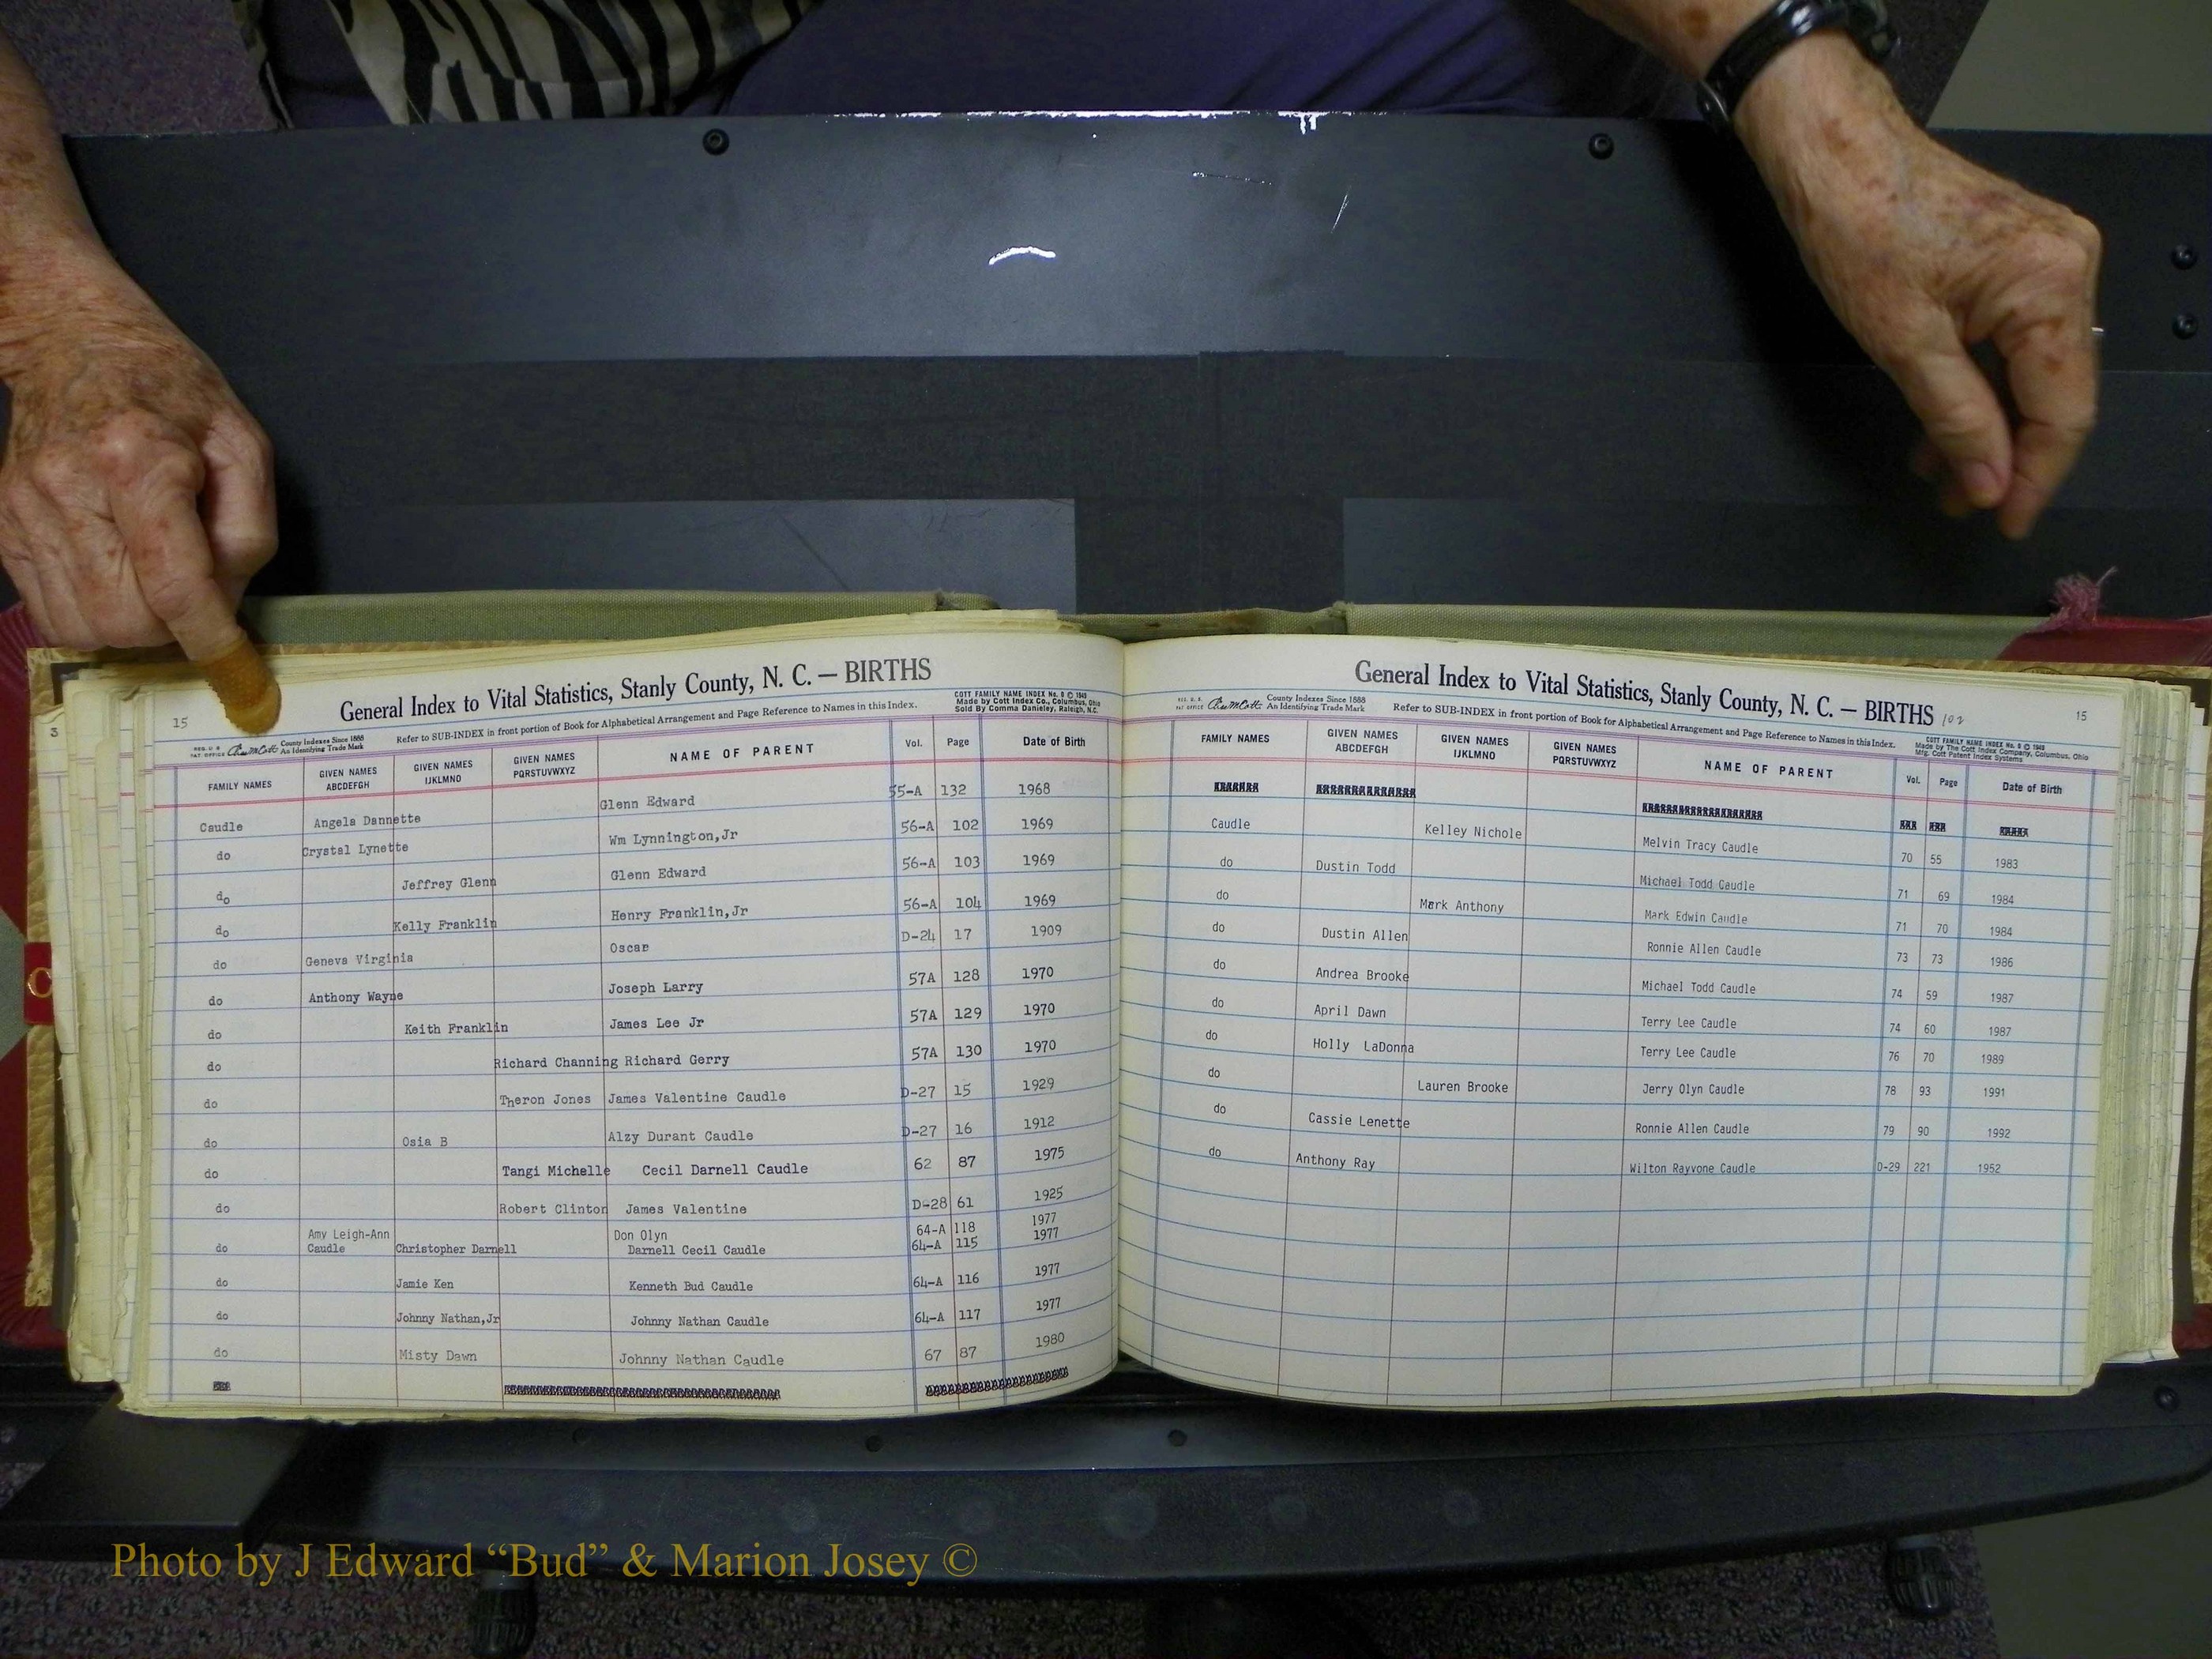 15
General Index to Vital Statistics, Stanly County, N. C. — BIRTHS
REG. U. S. PAT. OFFICE County Indexes Since 1888 An Identifying Trade Mark
Refer to SUB-INDEX in front portion of Book for Alphabetical Arrangement and Page Reference to Names in this Index.
COTT FAMILY NAME INDEX No. 8 © 1949
Made by Cott Index Co., Columbus, Ohio
Sold By Comma Danieley, Raleigh, N.C.
FAMILY NAMES GIVEN NAMES ABCDEFGH GIVEN NAMES IJKLMNO GIVEN NAMES PQRSTUVWXYZ NAME OF PARENT Vol. Page Date of Birth
Caudle Angela Dannette Glenn Edward 55-A 132 1968
do Crystal Lynette Wm Lynnington,Jr 56-A 102 1969
do Jeffrey Glenn Glenn Edward 56-A 103 1969
do Kelly Franklin Henry Franklin,Jr 56-A 104 1969
do Geneva Virginia Oscar D-24 17 1909
do Anthony Wayne Joseph Larry 57A 128 1970
do Keith Franklin James Lee Jr 57A 129 1970
do Richard Channing Richard Gerry 57A 130 1970
do Theron Jones James Valentine Caudle D-27 15 1929
do Osia B Alzy Durant Caudle D-27 16 1912
do Tangi Michelle Cecil Darnell Caudle 62 87 1975
do Robert Clinton James Valentine D-28 61 1925
Amy Leigh-Ann Don Olyn 64-A 118 1977
do Caudle Christopher Darnell Darnell Cecil Caudle 64-A 115 1977
do Jamie Ken Kenneth Bud Caudle 64-A 116 1977
do Johnny Nathan,Jr Johnny Nathan Caudle 64-A 117 1977
do Misty Dawn Johnny Nathan Caudle 67 87 1980
3
C
General Index to Vital Statistics, Stanly County, N. C. — BIRTHS 102
15
REG. U. S. PAT OFFICE County Indexes Since 1888 An Identifying Trade Mark
Refer to SUB-INDEX in front portion of Book for Alphabetical Arrangement and Page Reference to Names in this Index.
COTT FAMILY NAME INDEX No. 8 © 1949
Made by The Cott Index Company, Columbus, Ohio
Mfg. Cott Patent Index Systems
FAMILY NAMES GIVEN NAMES ABCDEFGH GIVEN NAMES IJKLMNO GIVEN NAMES PQRSTUVWXYZ NAME OF PARENT Vol. Page Date of Birth
Caudle Kelley Nichole Melvin Tracy Caudle 70 55 1983
do Dustin Todd Michael Todd Caudle 71 69 1984
do Mark Anthony Mark Edwin Caudle 71 70 1984
do Dustin Allen Ronnie Allen Caudle 73 73 1986
do Andrea Brooke Michael Todd Caudle 74 59 1987
do April Dawn Terry Lee Caudle 74 60 1987
do Holly LaDonna Terry Lee Caudle 76 70 1989
do Lauren Brooke Jerry Olyn Caudle 78 93 1991
do Cassie Lenette Ronnie Allen Caudle 79 90 1992
do Anthony Ray Wilton Rayvone Caudle D-29 221 1952
Photo by J Edward “Bud” & Marion Josey ©